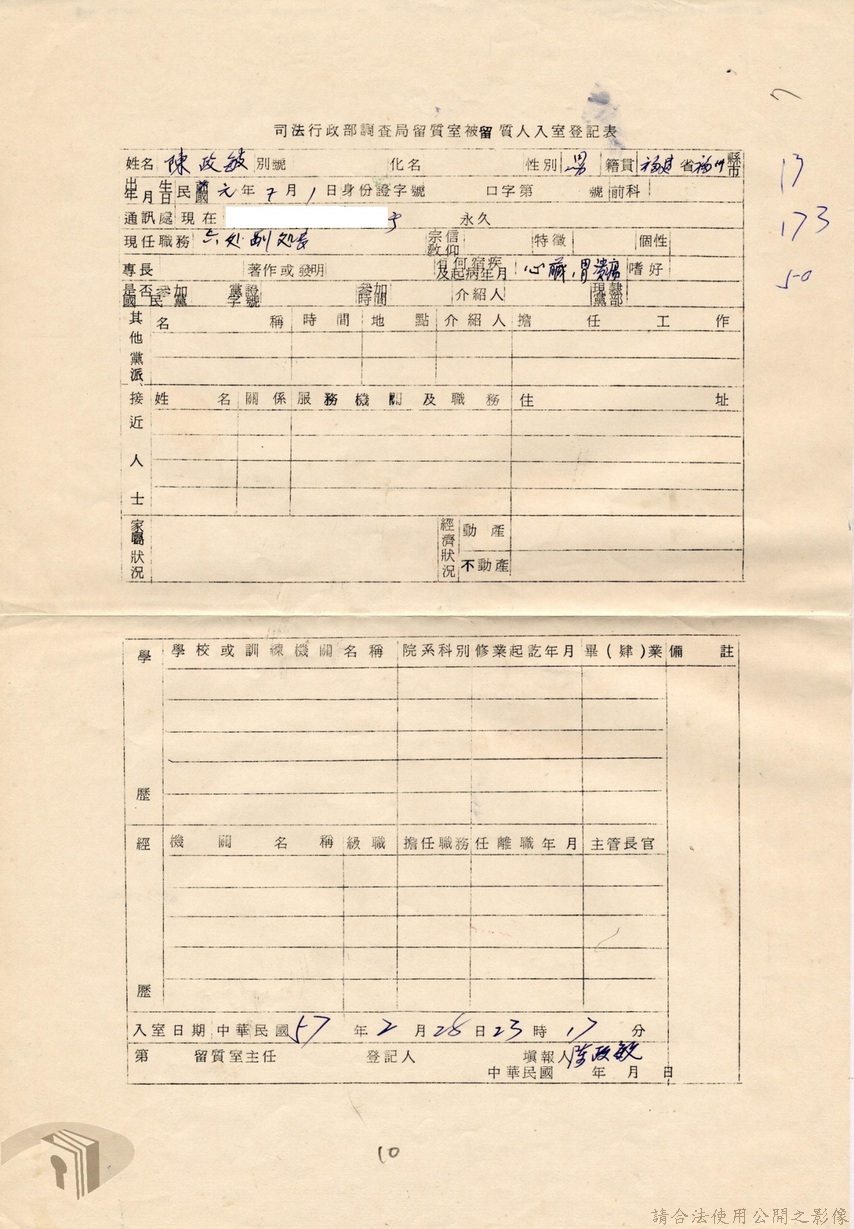 司法行政部調查局留質室被留質人入室登記表
姓名 陳政敏 別號 化名 性別 男 籍貫 福建 省 福州 縣市
出生年月日 民國 元 年 7 月 1 日 身份證字號 口字第 號 前科
通訊處 現在 永久
現任職務 六处副处長 宗教信仰 特徵 個性
專長 著作或發明 有何宿疾及起病年月 心臟 胃潰瘍 嗜好
是否參加國民黨 黨證字號 參加時間 介紹人 現隸黨部
其他黨派 名稱 時間 地點 介紹人 擔任工作
接近人士 姓名 關係 服務機關及職務 住址
家屬狀況 經濟狀況 動產
不動產
學歷 學校或訓練機關名稱 院系科別 修業起訖年月 畢(肄)業 備註
經歷 機關名稱 級職 擔任職務 任離職年月 主管長官
入室日期 中華民國 57 年 2 月 28 日 23 時 17 分
第 留質室主任 登記人 填報人 陳政敏
中華民國 年 月 日
17
173
50
10
請合法使用公開之影像